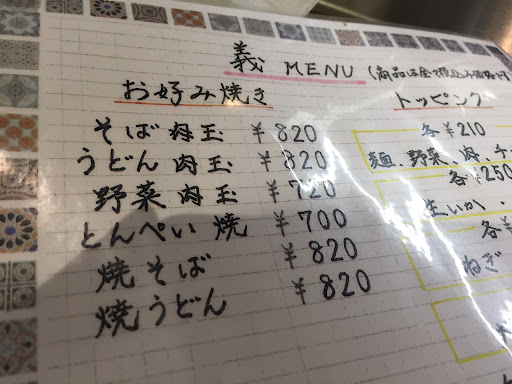 義 MENU (商品は全て税込み価格です
お好み焼き
そば 肉玉 ¥820
うどん 肉玉 ¥820
野菜 肉玉 ¥720
とんぺい焼 ¥700
焼そば ¥820
焼うどん ¥820
トッピング
各¥210
麺、野菜、肉、チー
各¥250
生いか・
各¥
ねぎ